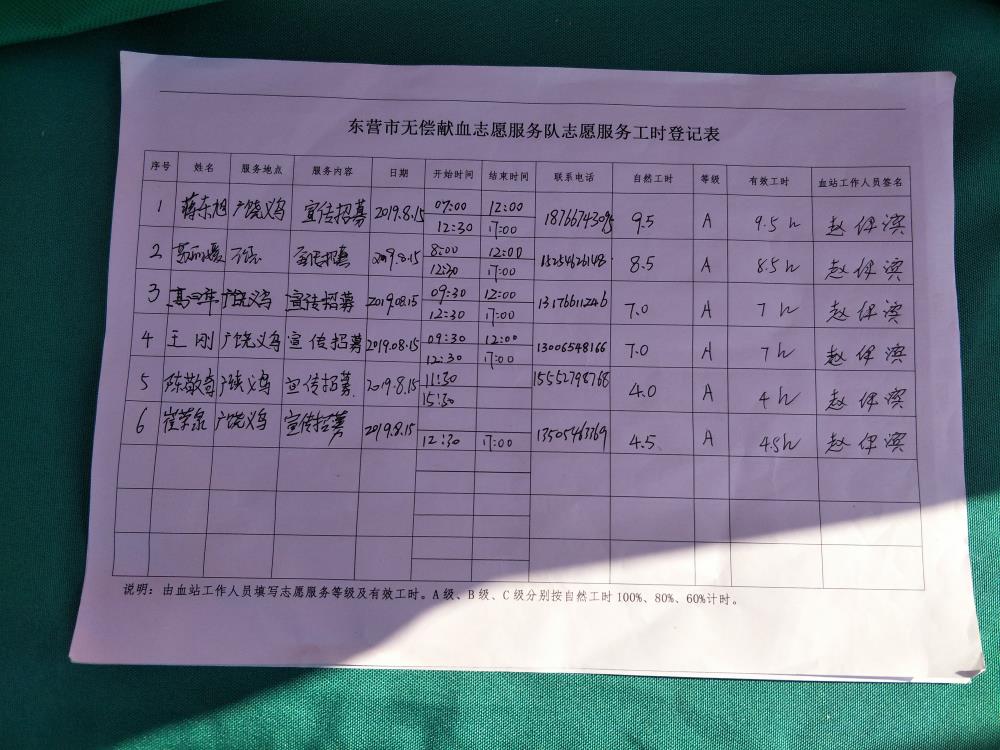 东营市无偿献血志愿服务队志愿服务工时登记表
序号 姓名 服务地点 服务内容 日期 开始时间 结束时间 联系电话 自然工时 等级 有效工时 血站工作人员签名
1 蒋东旭 广饶义乌 宣传招募 2019.8.15 07:00 12:00 9.5 A 9.5h 赵伊滨
12:30 17:00
2 宣传招募 2019.8.15 8:00 12:00 8.5 A 8.5h 赵伊滨
12:30 17:00
3 广饶义乌 宣传招募 2019.08.15 09:30 12:00 13176611246 7.0 A 7h 赵伊滨
12:30 17:00
4 王刚 广饶义乌 宣传招募 2019.08.15 09:30 12:00 13006548166 7.0 A 7h 赵伊滨
12:30 17:00
5 广饶义乌 宣传招募. 2019.8.15 11:30 15552798768 4.0 A 4h 赵伊滨
15:30
6 崔荣泉 广饶义乌 宣传招募 2019.8.15 12:30 17:00 13505463369 4.5 A 4.5h 赵伊滨
说明：由血站工作人员填写志愿服务等级及有效工时。A级、B级、C级分别按自然工时100%、80%、60%计时。